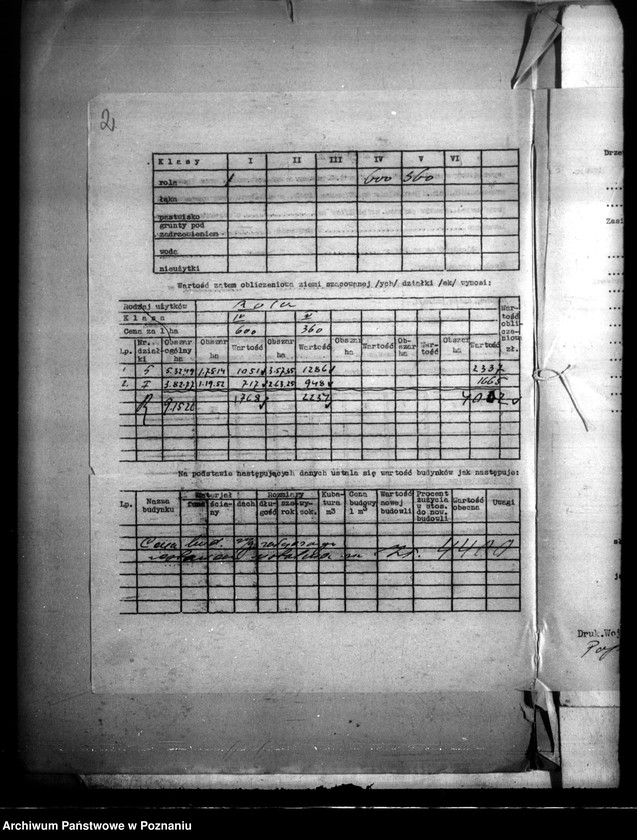 2
Klasy I II III IV V VI
rola 600 360
łąka
pastwisko
grunty pod
zadrzewieniem
woda
nieużytki
Wartość zatem obliczeniowa ziemi szacowanej /ych/ działki /ek/ wynosi:
Rodzaj użytków Rola
Klasa IV V
Cena za 1 ha 600 360
Lp. Nr. działki Obszar ogólny ha Obszar ha Wartość Obszar ha Wartość Obszar ha Wartość Obszar ha Wartość Obszar ha Wartość Wartość obliczeniowa zł.
1 5 5.32.49 1.75.14 1051 3.57.35 1286 2337
2. I 3.82.77 1.19.52 717 2.63.25 948 1665
R 9.15.26 1768 2237
Na podstawie następujących danych ustala się wartość budynków jak następuje:
Lp. Nazwa budynku Materjał funda ściany dach Rozmiary długość szerok. wysok. Kubatura m3 Cena budowy 1 m3 Wartość nowej budowli Procent zużycia w stos. do now. budowli Wartość obecna Uwagi
Cena bud.
zł. 4400
Drze
Zasi
Druk.Woj
Archiwum Państwowe w Poznaniu